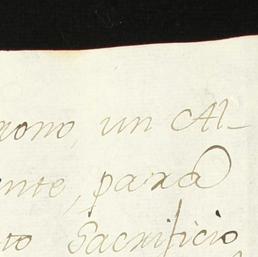 rono, un Al-
ente, para
to Sacrificio